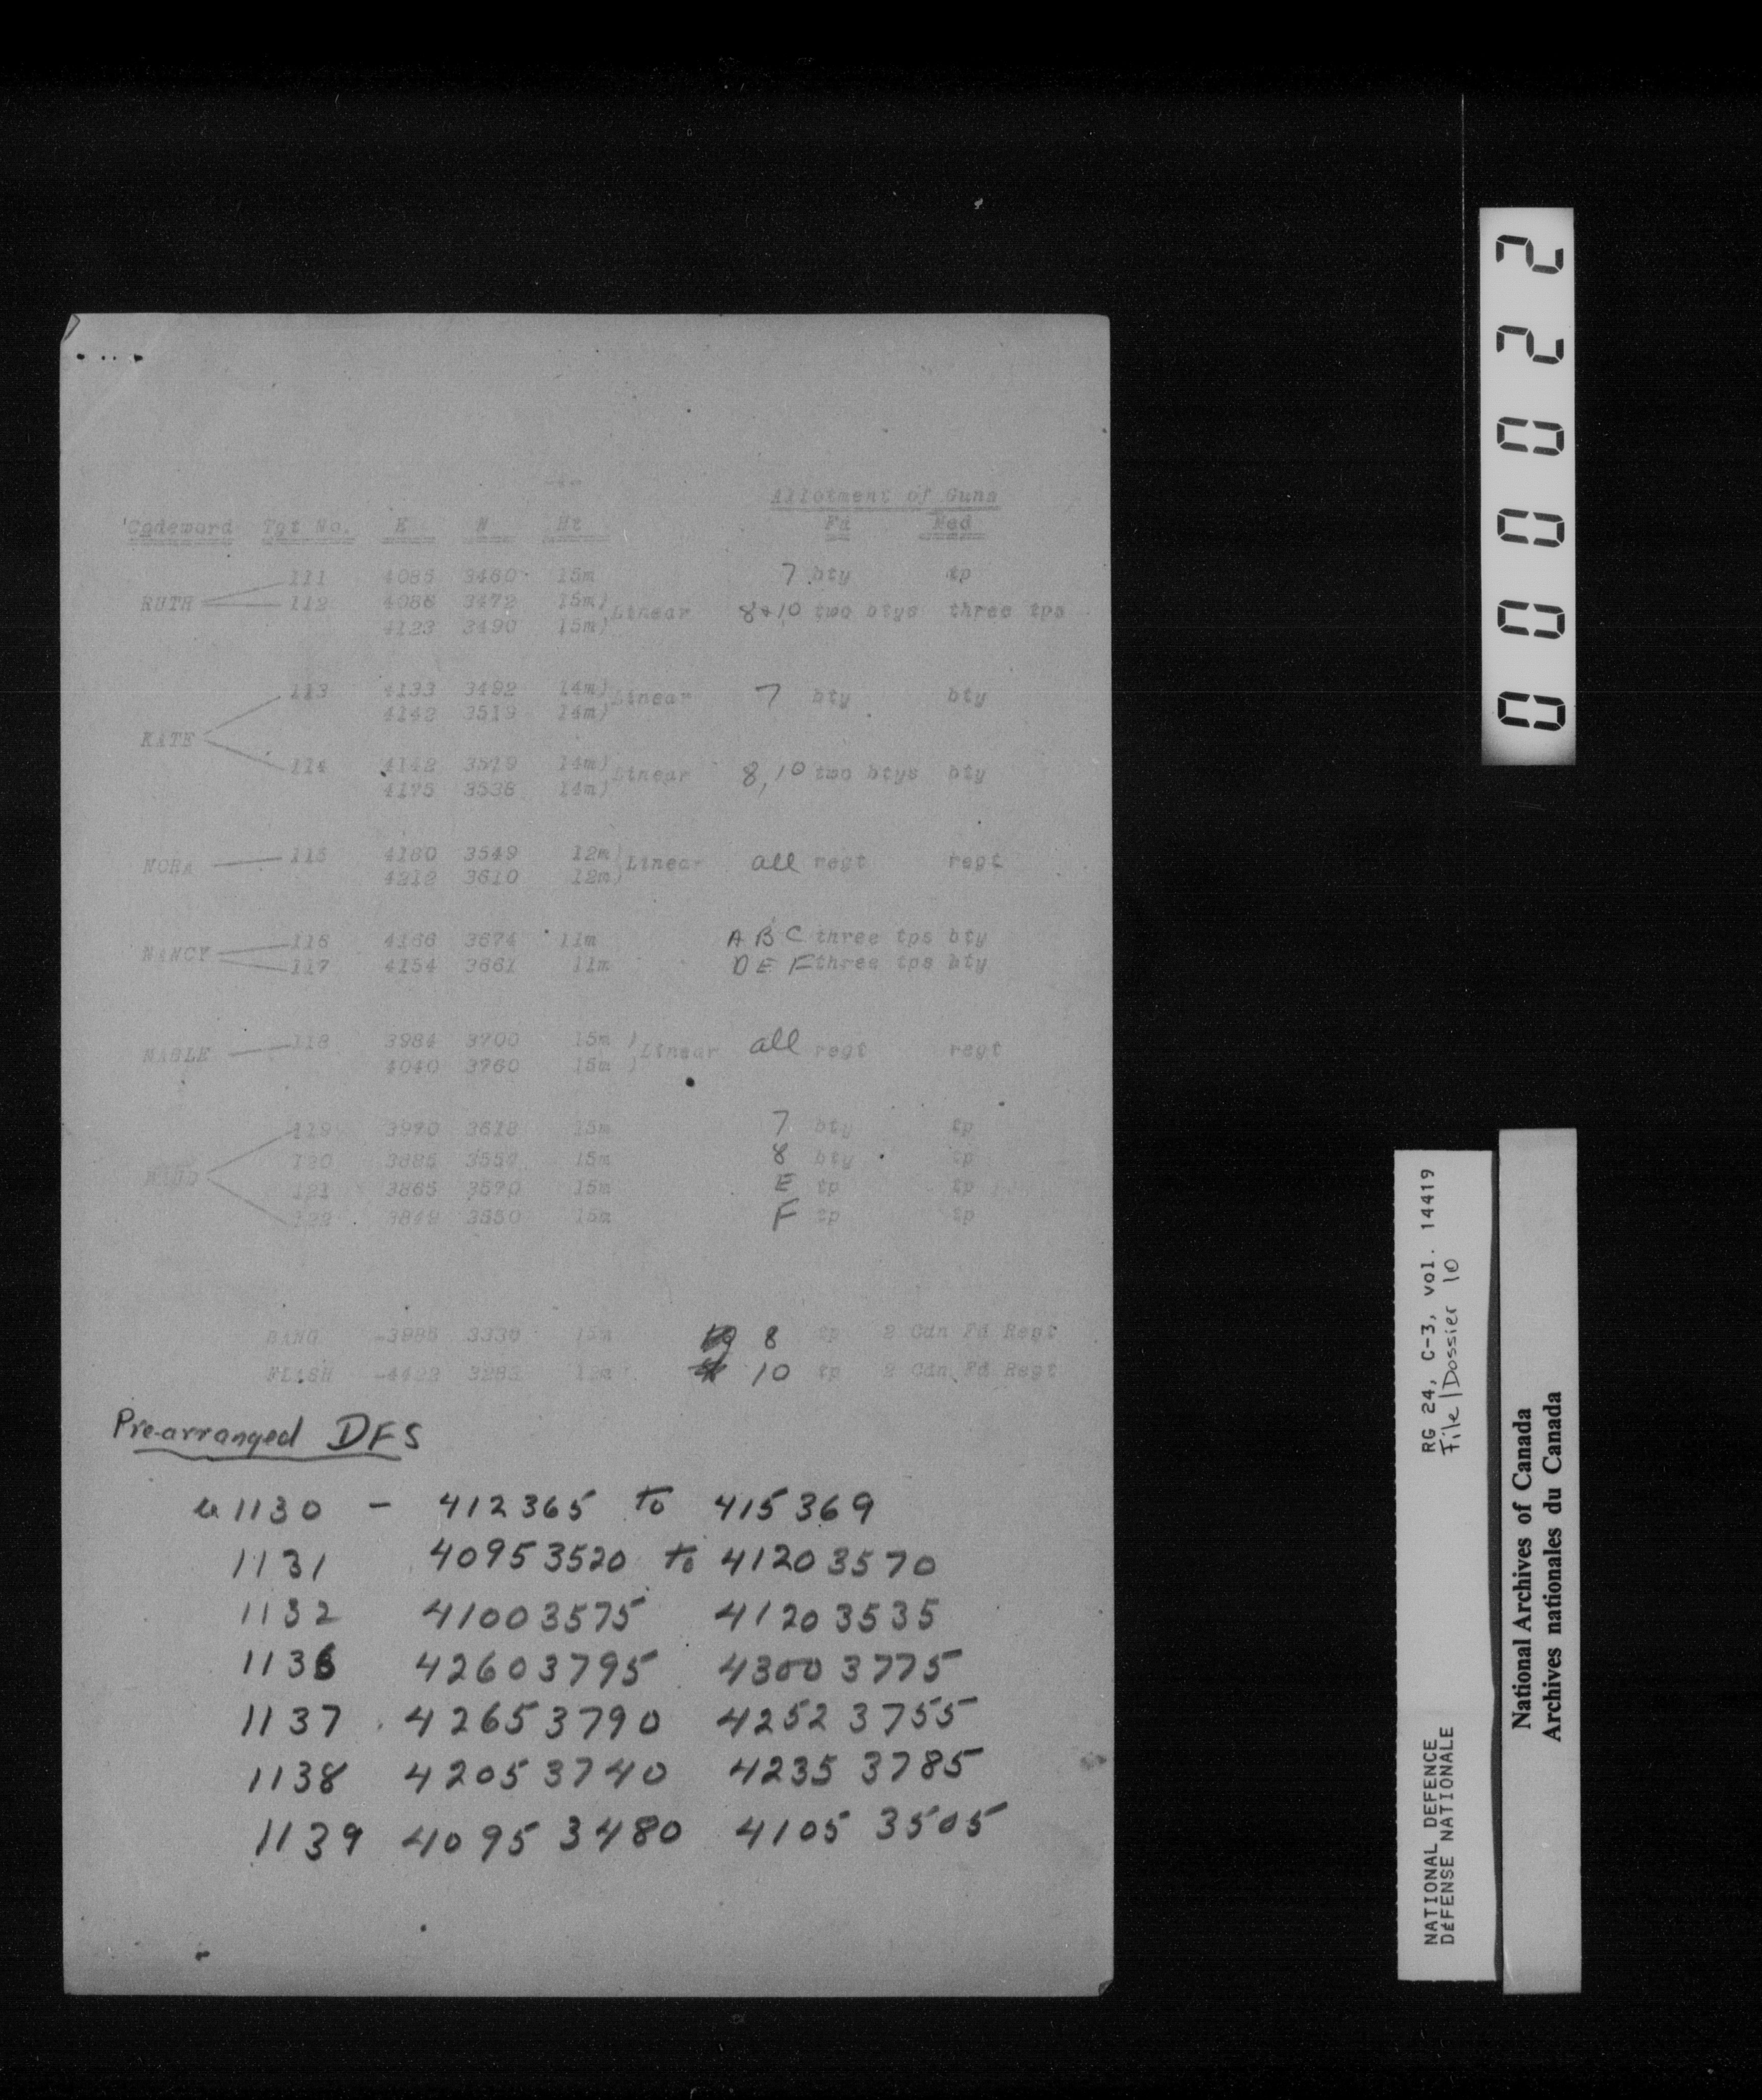 -4-
Allotment of Guns
Codeword Tgt No. E N Ht Fd Med
111 4085 3460 15m 7 bty tp
RUTH 112 4086 3472 15m) Linear 8+10 two btys three tps
4123 3490 15m)
113 4133 3492 14m) Linear 7 bty bty
4142 3519 14m)
KATE
114 4142 3519 14m) Linear 8,10 two btys bty
4175 3538 14m)
NORA 115 4180 3549 12m) Linear all regt regt
4212 3610 12m)
NANCY 116 4166 3674 11m A B C three tps bty
117 4154 3661 11m D E F three tps bty
MABLE 118 3984 3700 15m ) Linear all regt regt
4040 3760 15m )
119 3970 3618 15m 7 bty tp
120 3885 15m 8 bty tp
MAUD
121 3865 3570 15m E tp tp
122 3849 3550 15m F tp tp
BANG 3330 15m 8 tp 2 Cdn Fd Regt
FLASH 12m 10 tp 2 Cdn Fd Regt
Prearranged DFS
1130 - 412365 to 415369
1131 40953520 to 41203570
1132 41003575 41203535
1136 42603795 43003775
1137 42653790 4252 3755
1138 42053740 4235 3785
1139 4095 3480 4105 3505
000022
RG 24, C-3, vol. 14419
File/Dossier 10
NATIONAL DEFENCE
DÉFENSE NATIONALE
National Archives of Canada
Archives nationales du Canada